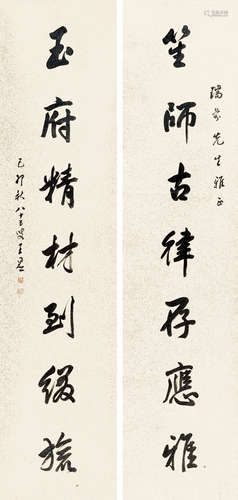 瑞尝先生雅正
笙師古律存應雅
玉府精材到缀旒
己卯秋八十五叟王